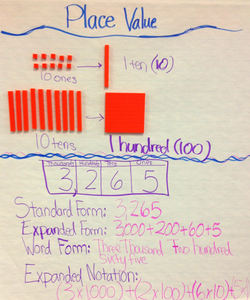 Place Value
10 ones
1 ten (10)
10 tens
1 hundred (100)
Thousands Hundreds Tens Ones
3, 2 6 5
Standard Form: 3,265
Expanded Form: 3000+200+60+5
Word Form: Three thousand two hundred
sixty five
Expanded Notation:
(3x1000)+(2x100)+(6x10)+